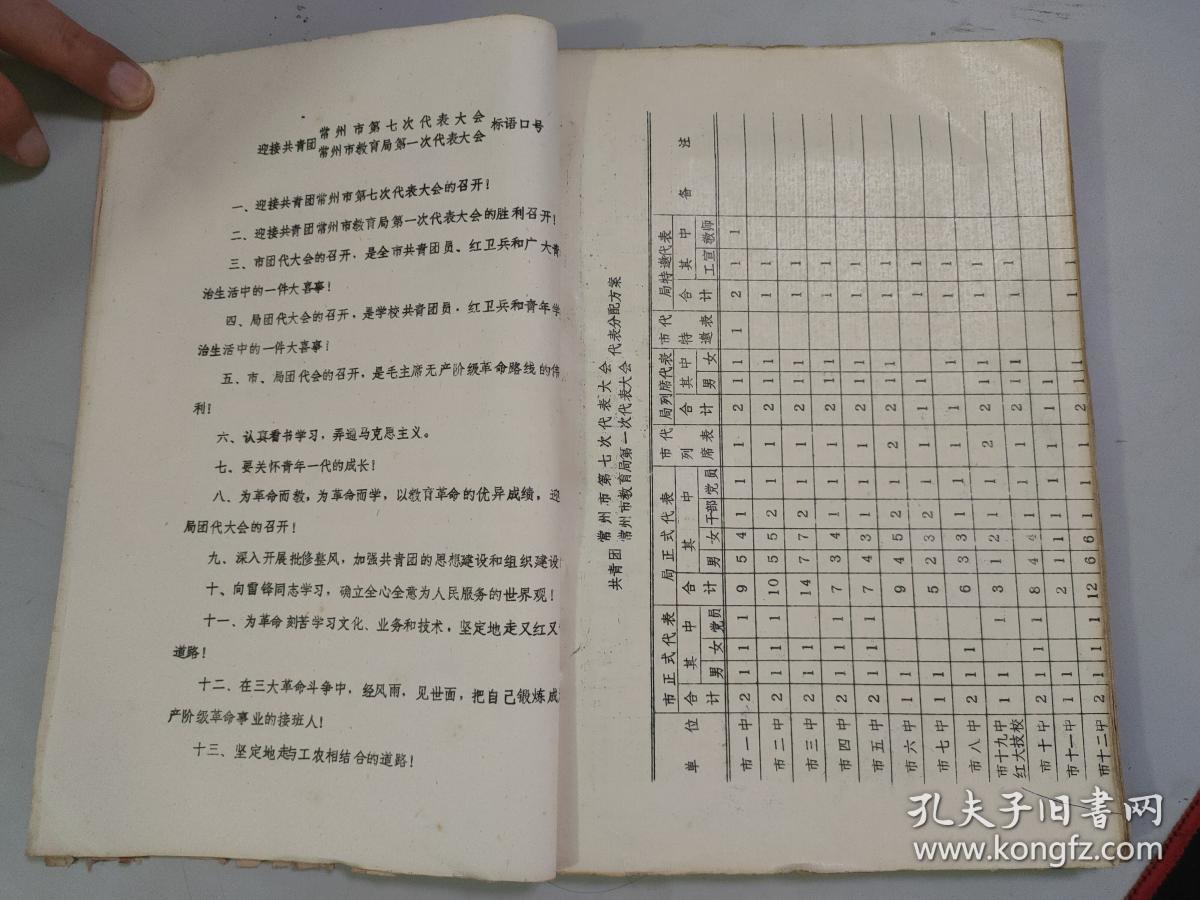 迎接共青团常州市第七次代表大会
常州市教育局第一次代表大会标语口号
一、迎接共青团常州市第七次代表大会的召开！
二、迎接共青团常州市教育局第一次代表大会的胜利召开！
三、市团代大会的召开，是全市共青团员、红卫兵和广大青
治生活中的一件大喜事！
四、局团代大会的召开，是学校共青团员，红卫兵和青年学
治生活中的一件大喜事！
五、市、局团代会的召开，是毛主席无产阶级革命路线的伟
利！
六、认真看书学习，弄通马克思主义。
七、要关怀青年一代的成长！
八、为革命而教，为革命而学，以教育革命的优异成绩，迎
局团代大会的召开！
九、深入开展批修整风，加强共青团的思想建设和组织建设
十、向雷锋同志学习，确立全心全意为人民服务的世界观！
十一、为革命刻苦学习文化、业务和技术，坚定地走又红又
道路！
十二、在三大革命斗争中，经风雨，见世面，把自己锻炼成
产阶级革命事业的接班人！
十三、坚定地走与工农相结合的道路！
共青团 常州市第七次代表大会
常州市教育局第一次代表大会 代表分配方案
单位 市正式代表 局正式代表 市列席代表 局列席代表 市特邀代表 局特邀代表 备注
合计 其中 男 女 党员 合计 其中 男 女 干部 党员 合计 其中 男 女 合计 其中 工宣 教师
市一中 2 1 1 1 9 5 4 1 1 1 2 1 1 1 2 1 1
市二中 2 1 1 1 10 5 5 2 1 1 2 1 1 1 1
市三中 2 1 1 14 7 7 2 1 1 2 1 1 1 1
市四中 2 1 1 1 7 3 4 1 1 1 2 1 1 1 1
市五中 2 1 1 1 7 4 3 1 1 1 2 1 1 1 1
市六中 1 1 9 4 5 2 1 2 2 1 1 1 1
市七中 1 1 5 2 3 2 1 1 1 1 1 1
市八中 2 1 1 6 3 3 1 1 1 1 1 1 1
市十九中
红大技校
市十中
市十一中
市十二中
孔夫子旧书网
www.kongfz.com